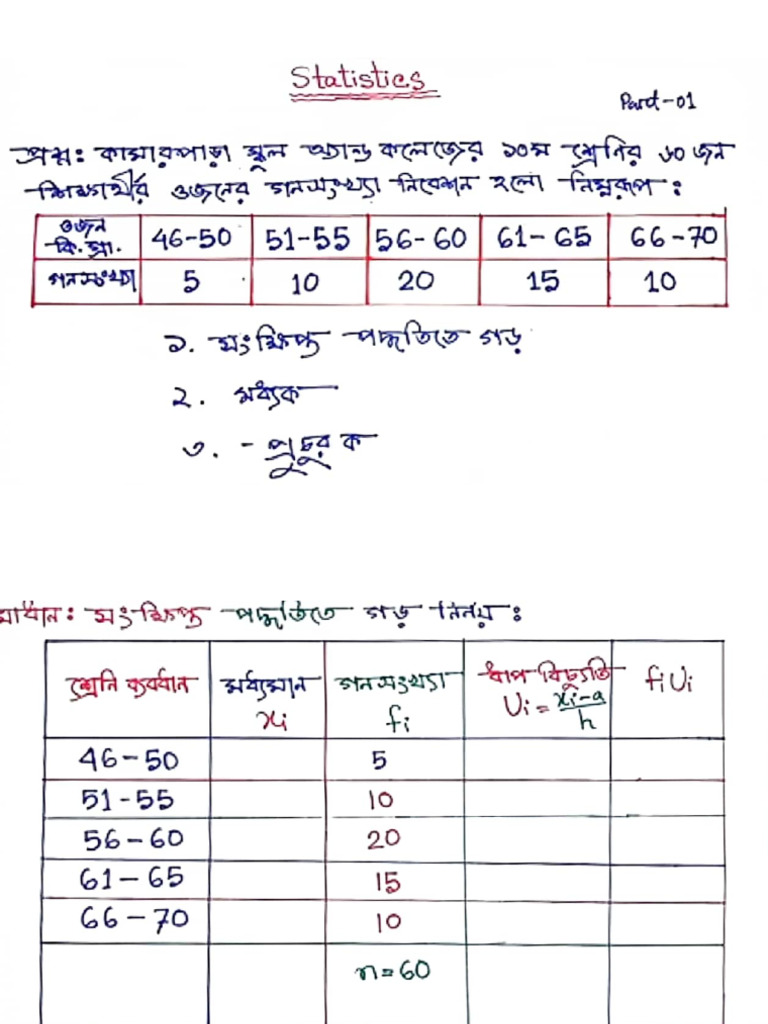 Statistics
Part-01
প্রশ্ন: কামারপাড়া স্কুল অ্যান্ড কলেজের ১০ম শ্রেণির ৬০ জন
শিক্ষার্থীর ওজনের গনসংখ্যা নিবেশন হলো নিম্নরূপ :
ওজন কি.গ্রা. 46-50 51-55 56-60 61-65 66-70
গনসংখ্যা 5 10 20 15 10
১. সংক্ষিপ্ত পদ্ধতিতে গড়
২. মধ্যক
৩. - প্রচুরক
মাধান: সংক্ষিপ্ত পদ্ধতিতে গড় নির্নয় :
শ্রেনি ব্যবধান মধ্যমান xi গনসংখ্যা fi ধাপ বিচ্যুতি Ui = xi-a/h fiUi
46-50 5
51-55 10
56-60 20
61-65 15
66-70 10
n=60